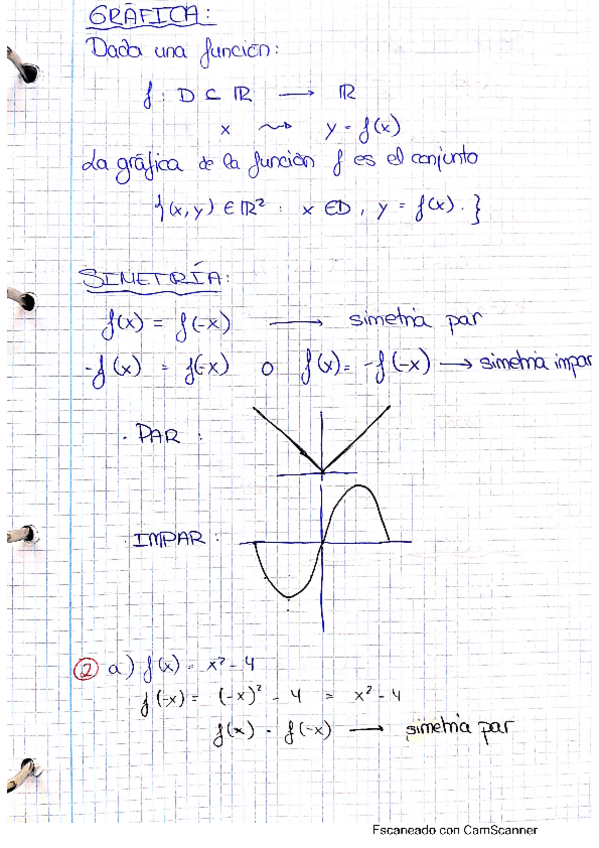 GRÁFICA:
Dada una función:
f: D ⊂ ℝ ⟶ ℝ
x ⇝ y = f(x)
La gráfica de la función f es el conjunto
{(x,y) ∈ ℝ² : x ∈ D, y = f(x).}
SIMETRÍA:
f(x) = f(-x) ⟶ simetría par
-f(x) = f(-x) o f(x) = -f(-x) ⟶ simetría impar
· PAR :
· IMPAR :
② a) f(x) = x² - 4
f(-x) = (-x)² - 4 = x² - 4
f(x) = f(-x) ⟶ simetría par
Escaneado con CamScanner